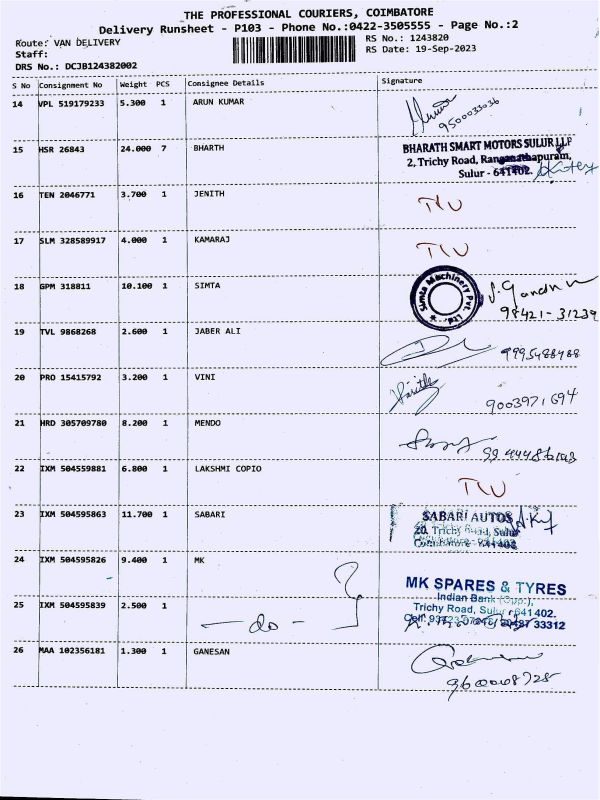 THE PROFESSIONAL COURIERS, COIMBATORE
Delivery Runsheet - P103 - Phone No.:0422-3505555 - Page No.:2
Route: VAN DELIVERY
RS No.: 1243820
Staff:
RS Date: 19-Sep-2023
DRS No.: DCJB124382002
S No Consignment No Weight PCS Consignee Details Signature
14 VPL 519179233 5.300 1 ARUN KUMAR
9500033036
15 HSR 26843 24.000 7 BHARTH
BHARATH SMART MOTORS SULUR LLP
2, Trichy Road, Ranganathapuram,
Sulur - 641402.
16 TEN 2046771 3.700 1 JENITH
17 SLM 328589917 4.000 1 KAMARAJ
18 GPM 318811 10.100 1 SIMTA
Simta Machinery Pvt. Ltd.
98421-31239
19 TVL 9868268 2.600 1 JABER ALI
9995488488
20 PRO 15415792 3.200 1 VINI
9003971694
21 HRD 305709780 8.200 1 MENDO
22 IXM 504559881 6.800 1 LAKSHMI COPIO
23 IXM 504595863 11.700 1 SABARI
SABARI AUTOS
20, Trichy Road, Sulur
Coimbatore - 641402
24 IXM 504595826 9.400 1 MK
MK SPARES & TYRES
Indian Bank (Opp.),
25 IXM 504595839 2.500 1 - do -
Trichy Road, Sulur - 641 402.
33312
26 MAA 102356181 1.300 1 GANESAN
9600068728